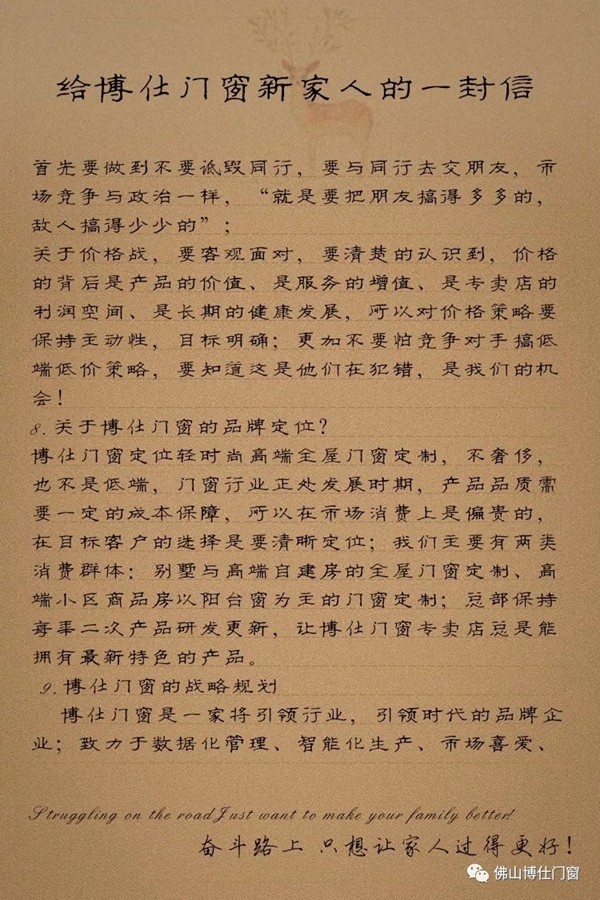 给博仕门窗新家人的一封信
首先要做到不要诋毁同行，要与同行去交朋友，市
场竞争与政治一样，“就是要把朋友搞得多多的，
敌人搞得少少的”；
关于价格战，要客观面对，要清楚的认识到，价格
的背后是产品的价值、是服务的增值、是专卖店的
利润空间、是长期的健康发展，所以对价格策略要
保持主动性，目标明确；更加不要怕竞争对手搞低
端低价策略，要知道这是他们在犯错，是我们的机
会！
8.关于博仕门窗的品牌定位？
博仕门窗定位轻时尚高端全屋门窗定制，不奢侈，
也不是低端，门窗行业正处发展时期，产品品质需
要一定的成本保障，所以在市场消费上是偏贵的，
在目标客户的选择是要清晰定位；我们主要有两类
消费群体：别墅与高端自建房的全屋门窗定制、高
端小区商品房以阳台窗为主的门窗定制；总部保持
每季二次产品研发更新，让博仕门窗专卖店总是能
拥有最新特色的产品。
9.博仕门窗的战略规划
博仕门窗是一家将引领行业，引领时代的品牌企
业；致力于数据化管理、智能化生产、市场喜爱、
Struggling on the road Just want to make your family better!
奋斗路上 只想让家人过得更好！
佛山博仕门窗